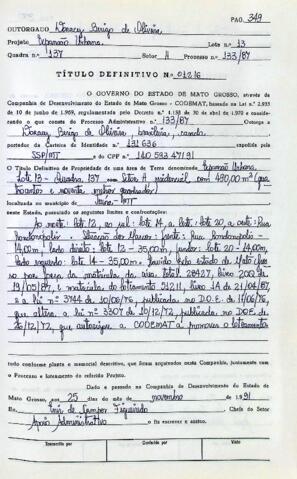 PAG. 349
OUTORGADO
Projeto Expansão Urbana Lote n.º 13
Quadra n.º 137 Setor A Processo n.º 133/87
TÍTULO DEFINITIVO N.º 01216
O GOVERNO DO ESTADO DE MATO GROSSO, através da
Companhia de Desenvolvimento do Estado de Mato Grosso - CODEMAT, baseado na Lei n.º 2.933
de 10 de junho de 1969, regulamentada pelo Decreto n.º 1.138 de 30 de abril de 1970 e considerando
o que consta do Processo Administrativo n.º 133/87 Outorga a
brasileiro, casado
portador da Carteira de Identidade n.º 131 636 expedida pela
SSP/MT e do CPF n.º 140 593 471 91
O Título Definitivo de Propriedade de uma área de Terra denominada: Expansão Urbana,
Lote 13 - Quadra 137 Setor A residencial com 490,00 m² (qua
trocentos e noventa metros quadrados)
localizada no município de MT
neste Estado, possuindo os seguintes limites e confrontações:
Ao norte: lote 12, ao sul: lote 14, a leste: lote 20, a oeste: Rua
Rondonópolis - frente: Rua Rondonópolis -
14,00m, lado direito: lote 12 - 35,00m, fundos: lote 20 - 14,00m,
lado esquerdo: lote 14 - 35,00m. pelo estado de Mato Gros
so por força da matrícula da área total: 28427, livro 2
19/05/87, e matrícula do loteamento livro 1A de 21/04/87,
e a lei nº 3744 de 10/06/76, publicada no D.O.E. de
que altera a lei nº 3307 de 10/12/72, publicada no D.O.E. de
20/12/72, que autorizou a CODEMAT a promover o loteamento
tudo conforme planta e memorial descritivo, que foram arquivados nesta Companhia, juntamente com
o Processo e loteamento do referido Projeto.
Dado e passado na Companhia de Desenvolvimento do Estado de
Mato Grosso, aos 25 dias do mês de novembro de 1.991
Eu, de Campos Figueiredo Chefe do Setor
Apoio Administrativo o fiz escrever e assino.
Transcrito por Conferido por Visto